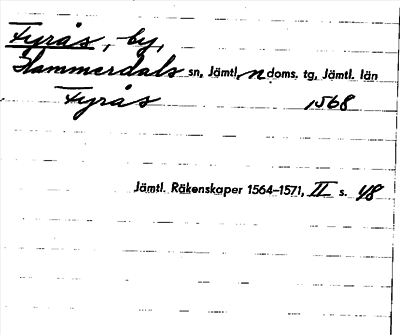 Fyrås, by,
Hammerdals sn, Jämtl. n doms. tg, Jämtl. län
Fyrås 1568
Jämtl. Räkenskaper 1564–1571, II s. 48